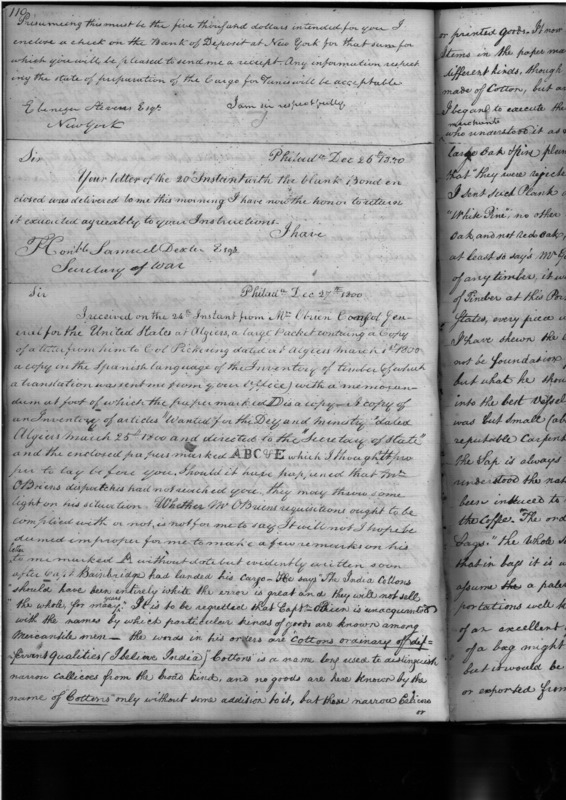 110
Presuming this must be the five thousand dollars intended for you I
inclose a check on the Bank of Deposit at New York for that sum for
which you will be pleased to send me a receipt. Any information respect
ing the state of preparation of the Cargo for Tunis will be acceptable
I am sir respectfully
Ebenezer Stevens Esqr.
New York
Philada Dec 26th 1800
Sir
Your letter of the 20th Instant with the blank Bond en
closed was delivered to me this morning I have now the honor to return
it executed agreeably to your Instructions
I have
Honble Samuel Dexter Esqr.
Secretary of War
Sir Philada Dec 27th 1800
I received on the 24th Instant from Mr Obrien Consul Gen-
eral for the United States at Algiers, a large Packet containg a Copy
of a letter from him to Col Pickering dated at Algiers March 1st 1800
a copy in the Spanish language of the Inventory of timber (of which
a translation was sent me from your Office) with a memoran-
dum at foot of which the paper marked D is a copy. A copy of
an Inventory of articles "Wanted" for the Dey and ministry" dated
Algiers March 25th 1800 and directed to the "Secretary of State"
and the enclosed papers marked ABC&E which I thought pro
per to lay before you. Should it have happened that Mr
OBriens dispatches had not reached you, they may throw some
light on his situation. Whether Mr OBriens requisitions ought to be
complied with or not, is not for me to say. It will not I hope be
deemed improper for me to make a few remarks on his
letter
to me marked D. without date but evidently written soon
after Capt Bainbridge had landed his Cargo. He says "The India Cottons
should have been entirely white the error is great and they will not sell
"the whole, for many years" It is to be regretted that Capt OBrien is unacquainted
with the names by which particular kinds of goods are known among
Mercantile men — the words in his orders are "Cottons ordinary of dif-
ferent Qualities (I believe India) "Cottons" is a name long used to distinguish
narrow callicoes from the broad kind, and no goods are here known by the
name of Cottons "only without some addition to it, but these narrow Calicoes
or
or printed goods. It now
items in the paper
different kinds, though
made of Cotton, but
I began to execute the
merchants
who understood it as
large Oak Spire
that they were
I sent such Plank
"White Pine" no other
Oak, and not red oak,
at least so says Mr
of any timber, it
of Timber at this Port
States, every piece
I have shewn the
not be foundation
but what he
into the best vessel
was but small
reputable Carpenters
the Sap is always
understood the
been induced to
the Coffee. The
bags." the whole
that in bags it is a
assume the a
portations well
of an excellent
of a bag might
but it would be
or exported from